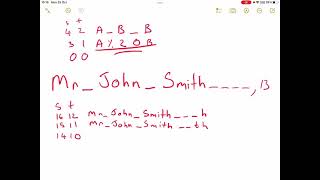 s t
4 2 A _ B _ B
3 1 A % 2 0 B
0 0
Mr_John_Smith____, 13
s t
16 12 Mr_John_Smith___h
15 11 Mr_John_Smith__th
14 10